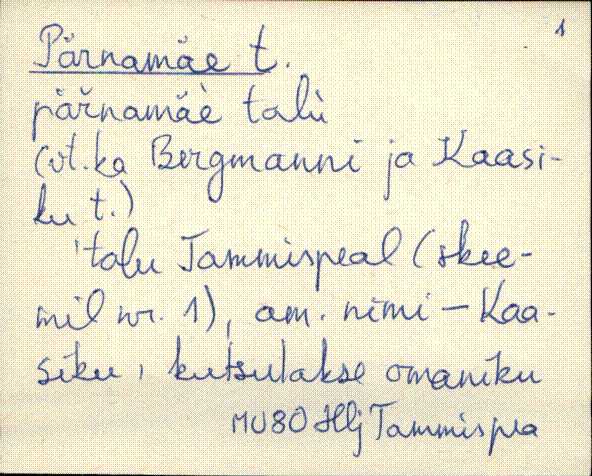 1
Pärnamäe t.
päřnamäè talù
(vt. ka Bergmanni ja Kaasi-
ku t.)
'talu Tammispeal (skee-
mil nr. 1), am. nimi – Kaa-
siku, kutsutakse omaniku
MU80 Hlj Tammispea